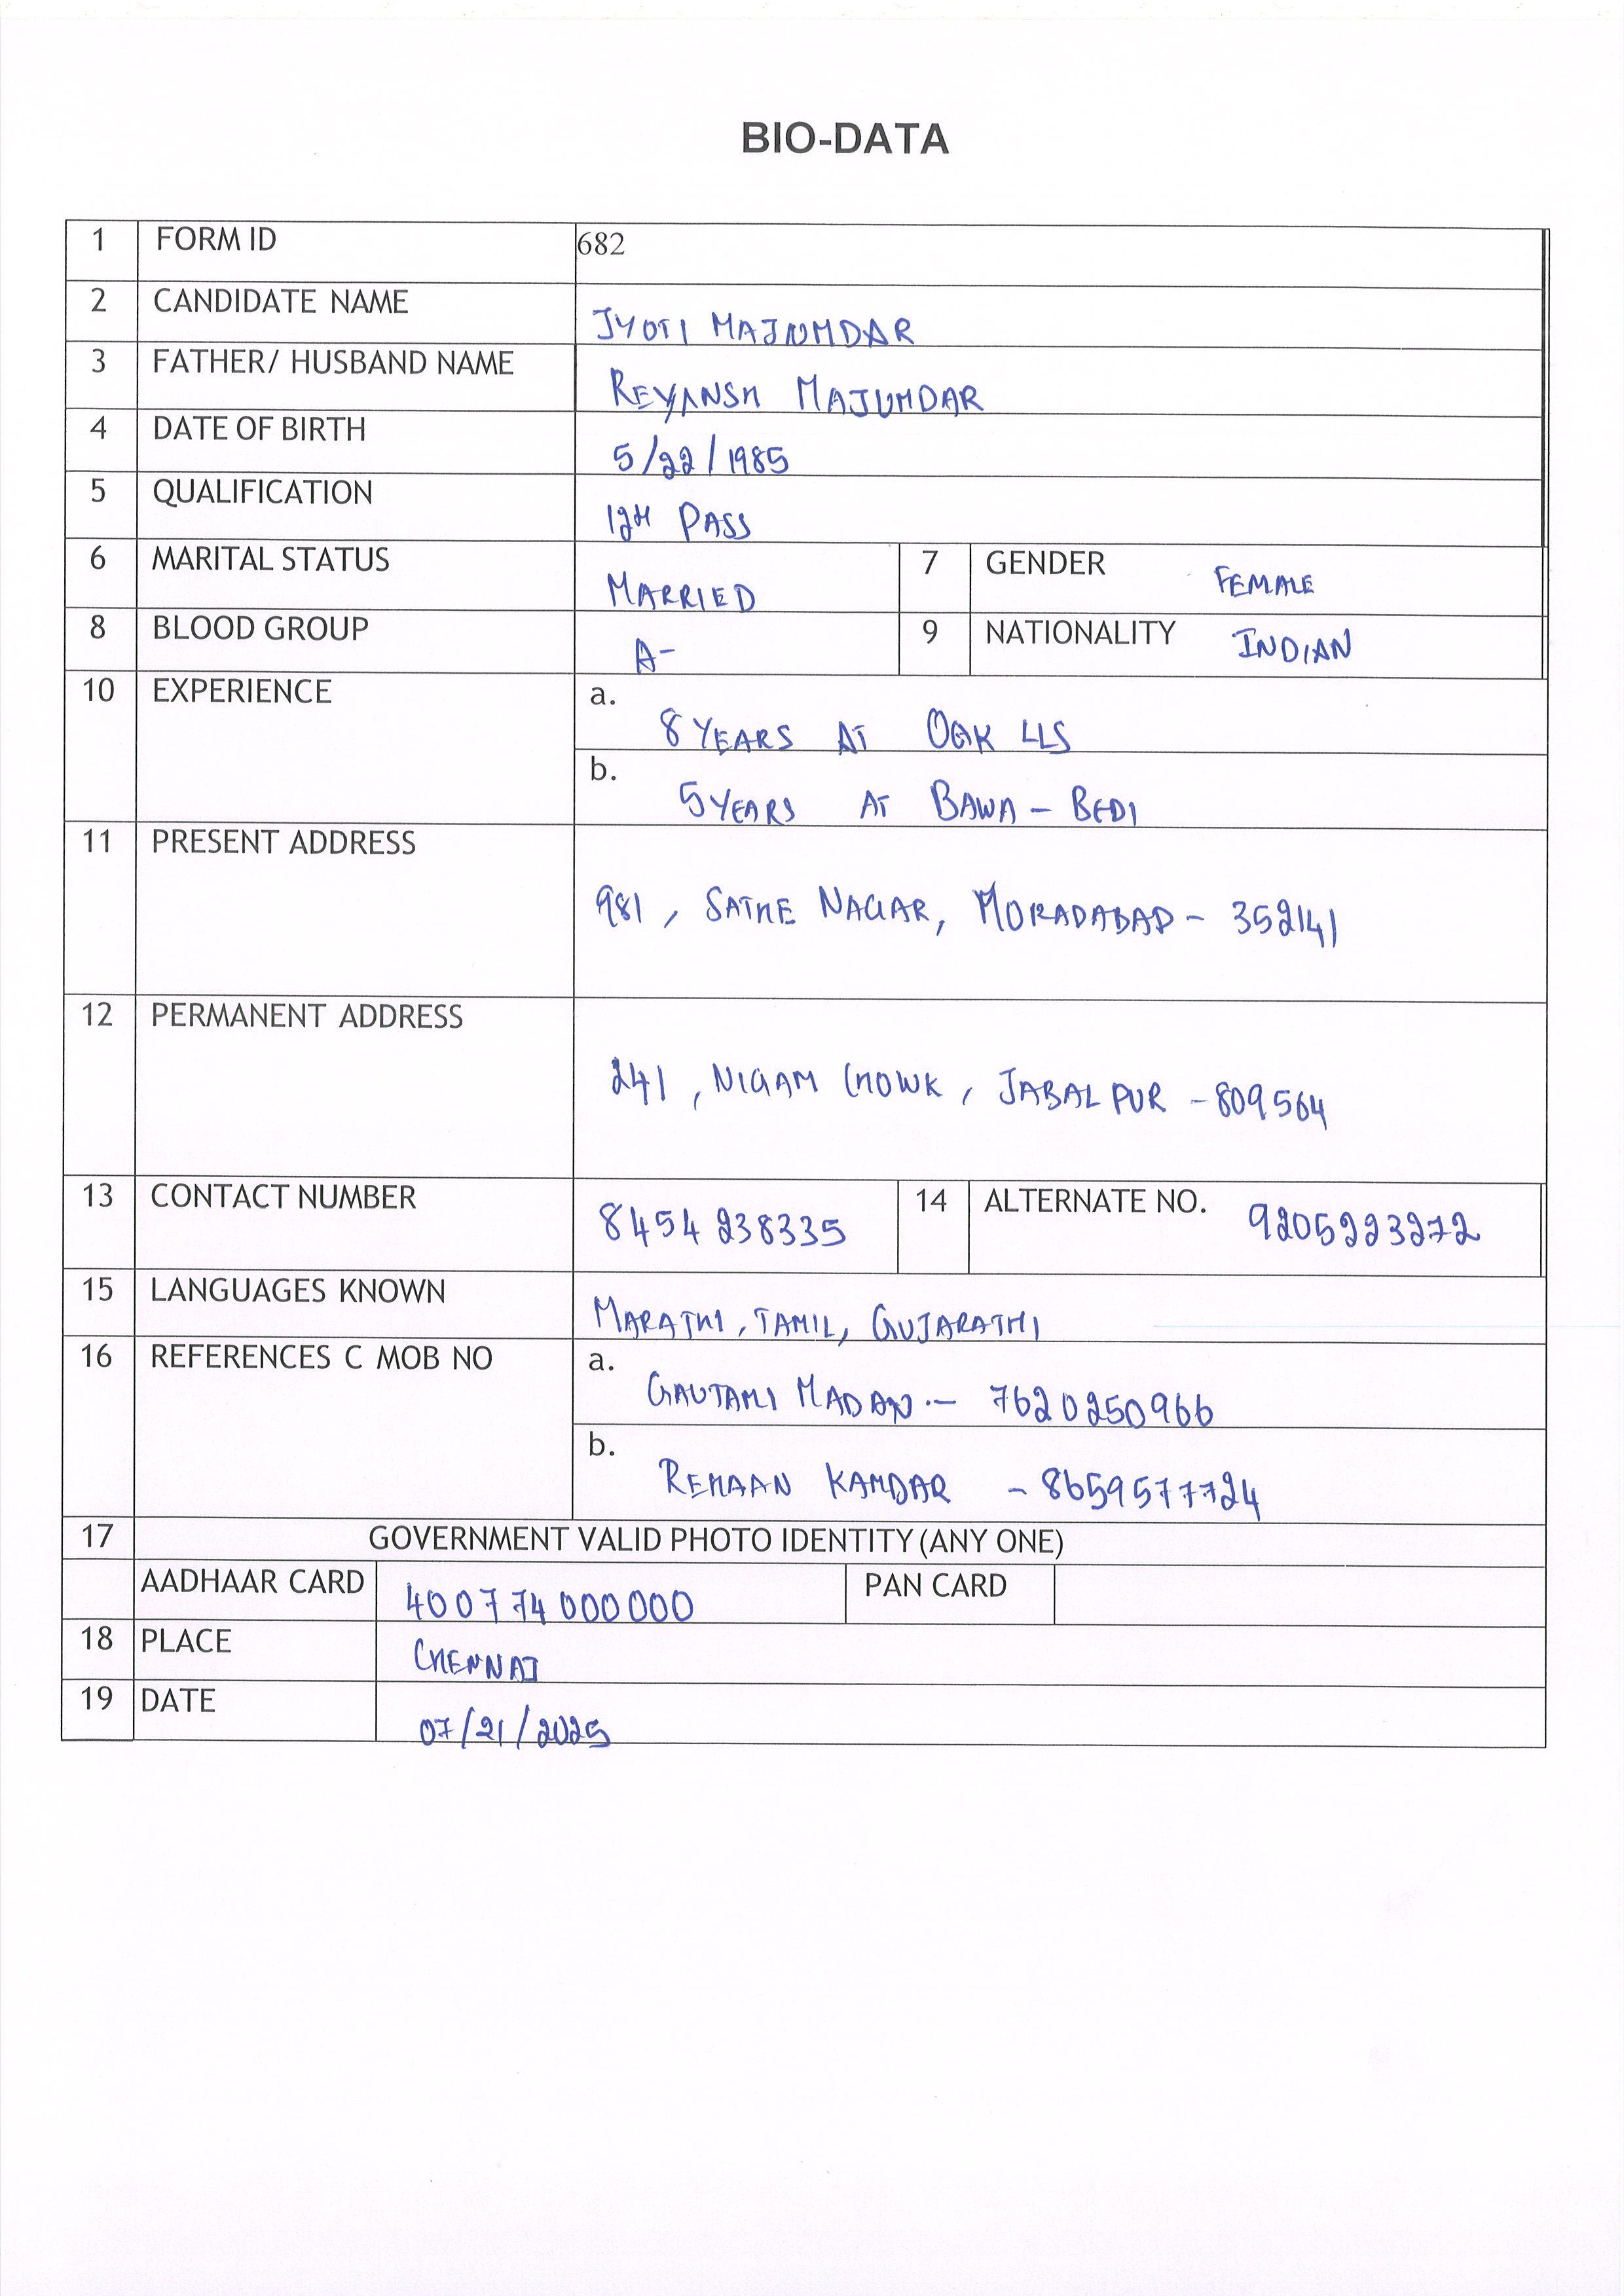 BIO-DATA
1 FORM ID 682
2 CANDIDATE NAME JYOTI MAJUMDAR
3 FATHER/ HUSBAND NAME REYANSH MAJUMDAR
4 DATE OF BIRTH 5/22/1985
5 QUALIFICATION 12TH PASS
6 MARITAL STATUS MARRIED 7 GENDER FEMALE
8 BLOOD GROUP A- 9 NATIONALITY INDIAN
10 EXPERIENCE a. 8 YEARS AT
b. 5 YEARS AT BAWA - BEDI
11 PRESENT ADDRESS
981, SATHE NAGAR, MORADABAD - 352141
12 PERMANENT ADDRESS
241, NIGAM CHOWK, JABALPUR - 809564
13 CONTACT NUMBER 8454238335 14 ALTERNATE NO. 9205223272
15 LANGUAGES KNOWN MARATHI, TAMIL, GUJARATHI
16 REFERENCES C MOB NO a. GAUTAMI MADAN :- 7620250966
b. REHAAN KAMDAR - 8659577724
17 GOVERNMENT VALID PHOTO IDENTITY (ANY ONE)
AADHAAR CARD 400774000000 PAN CARD
18 PLACE CHENNAI
19 DATE 07/21/2025